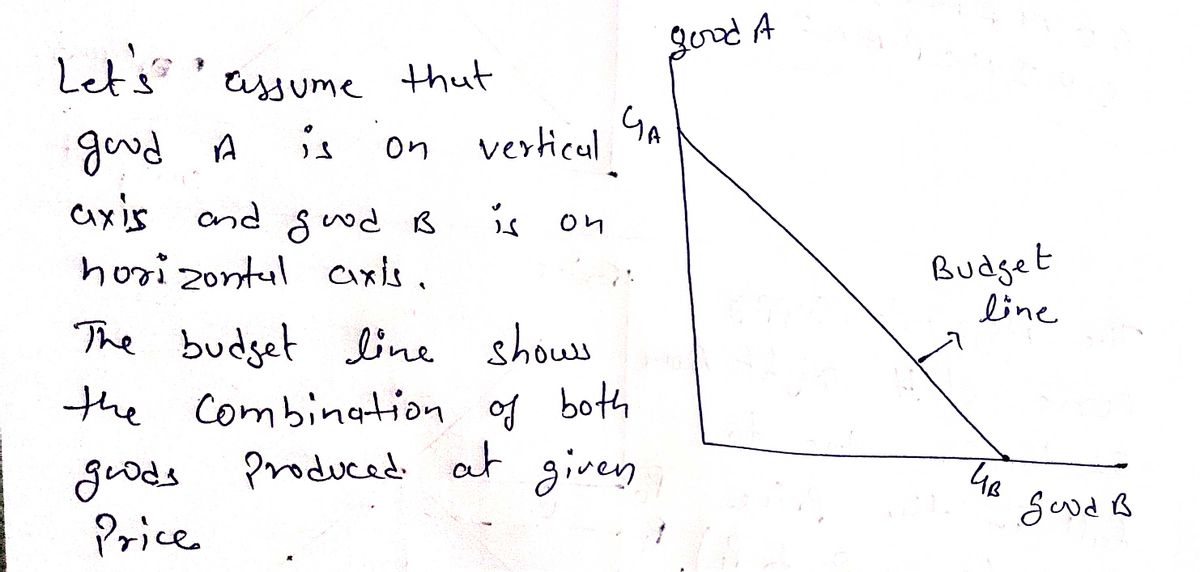 Let's assume that
good A is on vertical
axis and good B is on
horizontal axis.
The budget line shows
the combination of both
goods Produced at given
Price
good A
GA
Budget
line
GB
good B